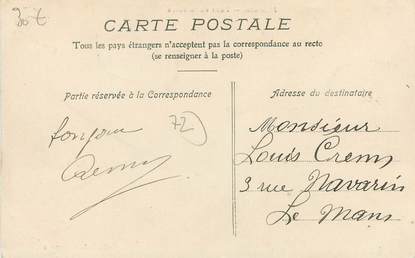 30 €
CARTE POSTALE
Tous les pays étrangers n'acceptent pas la correspondance au recto
(se renseigner à la poste)
Partie réservée à la Correspondance
Adresse du destinataire
bonjour
72
Monsieur
Louis
3 rue Navarin
Le Mans